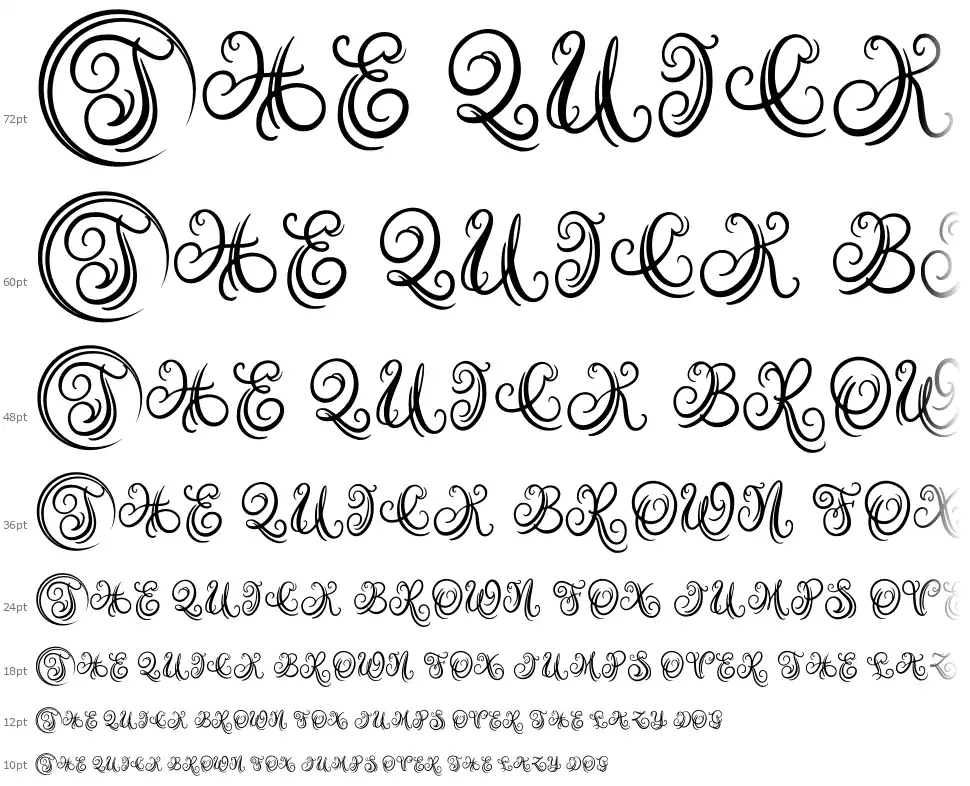 72pt THE QUICK
60pt THE QUICK B
48pt THE QUICK BROW
36pt THE QUICK BROWN FOX
24pt THE QUICK BROWN FOX JUMPS OVE
18pt THE QUICK BROWN FOX JUMPS OVER THE LAZ
12pt THE QUICK BROWN FOX JUMPS OVER THE LAZY DOG
10pt THE QUICK BROWN FOX JUMPS OVER THE LAZY DOG